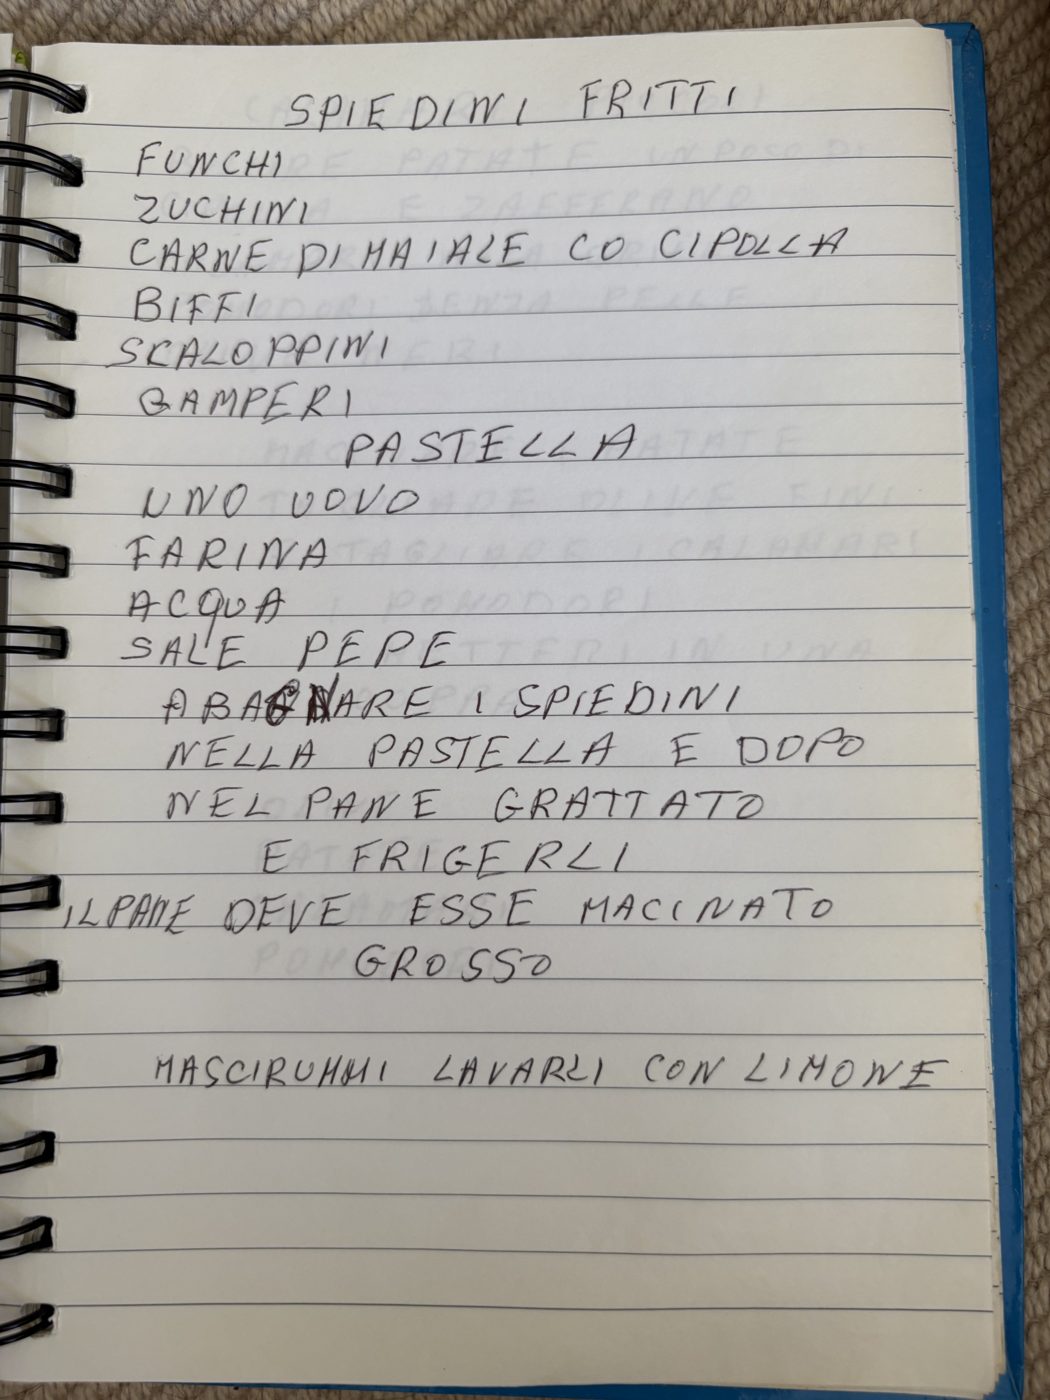 SPIEDINI FRITTI
FUNCHI
ZUCHINI
CARNE DI MAIALE CO CIPOLLA
BIFFI
SCALOPPINI
GAMPERI
PASTELLA
UNO UOVO
FARINA
ACQUA
SALE PEPE
ABAGNARE I SPIEDINI
NELLA PASTELLA E DOPO
NEL PANE GRATTATO
E FRIGERLI
IL PANE DEVE ESSE MACINATO
GROSSO
MASCIRUMMI LAVARLI CON LIMONE